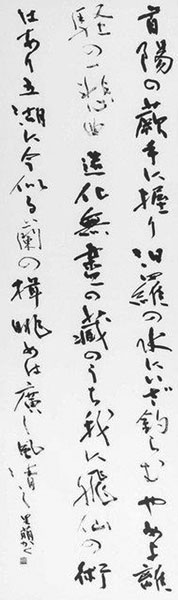 首陽の蕨手に握り汨羅の水にいざ釣らむやめよ離
騒の一悲曲造化無盡の蔵のうち我に飛仙の術
はあり五湖に今似る蘭の楫眺めは廣し風清し